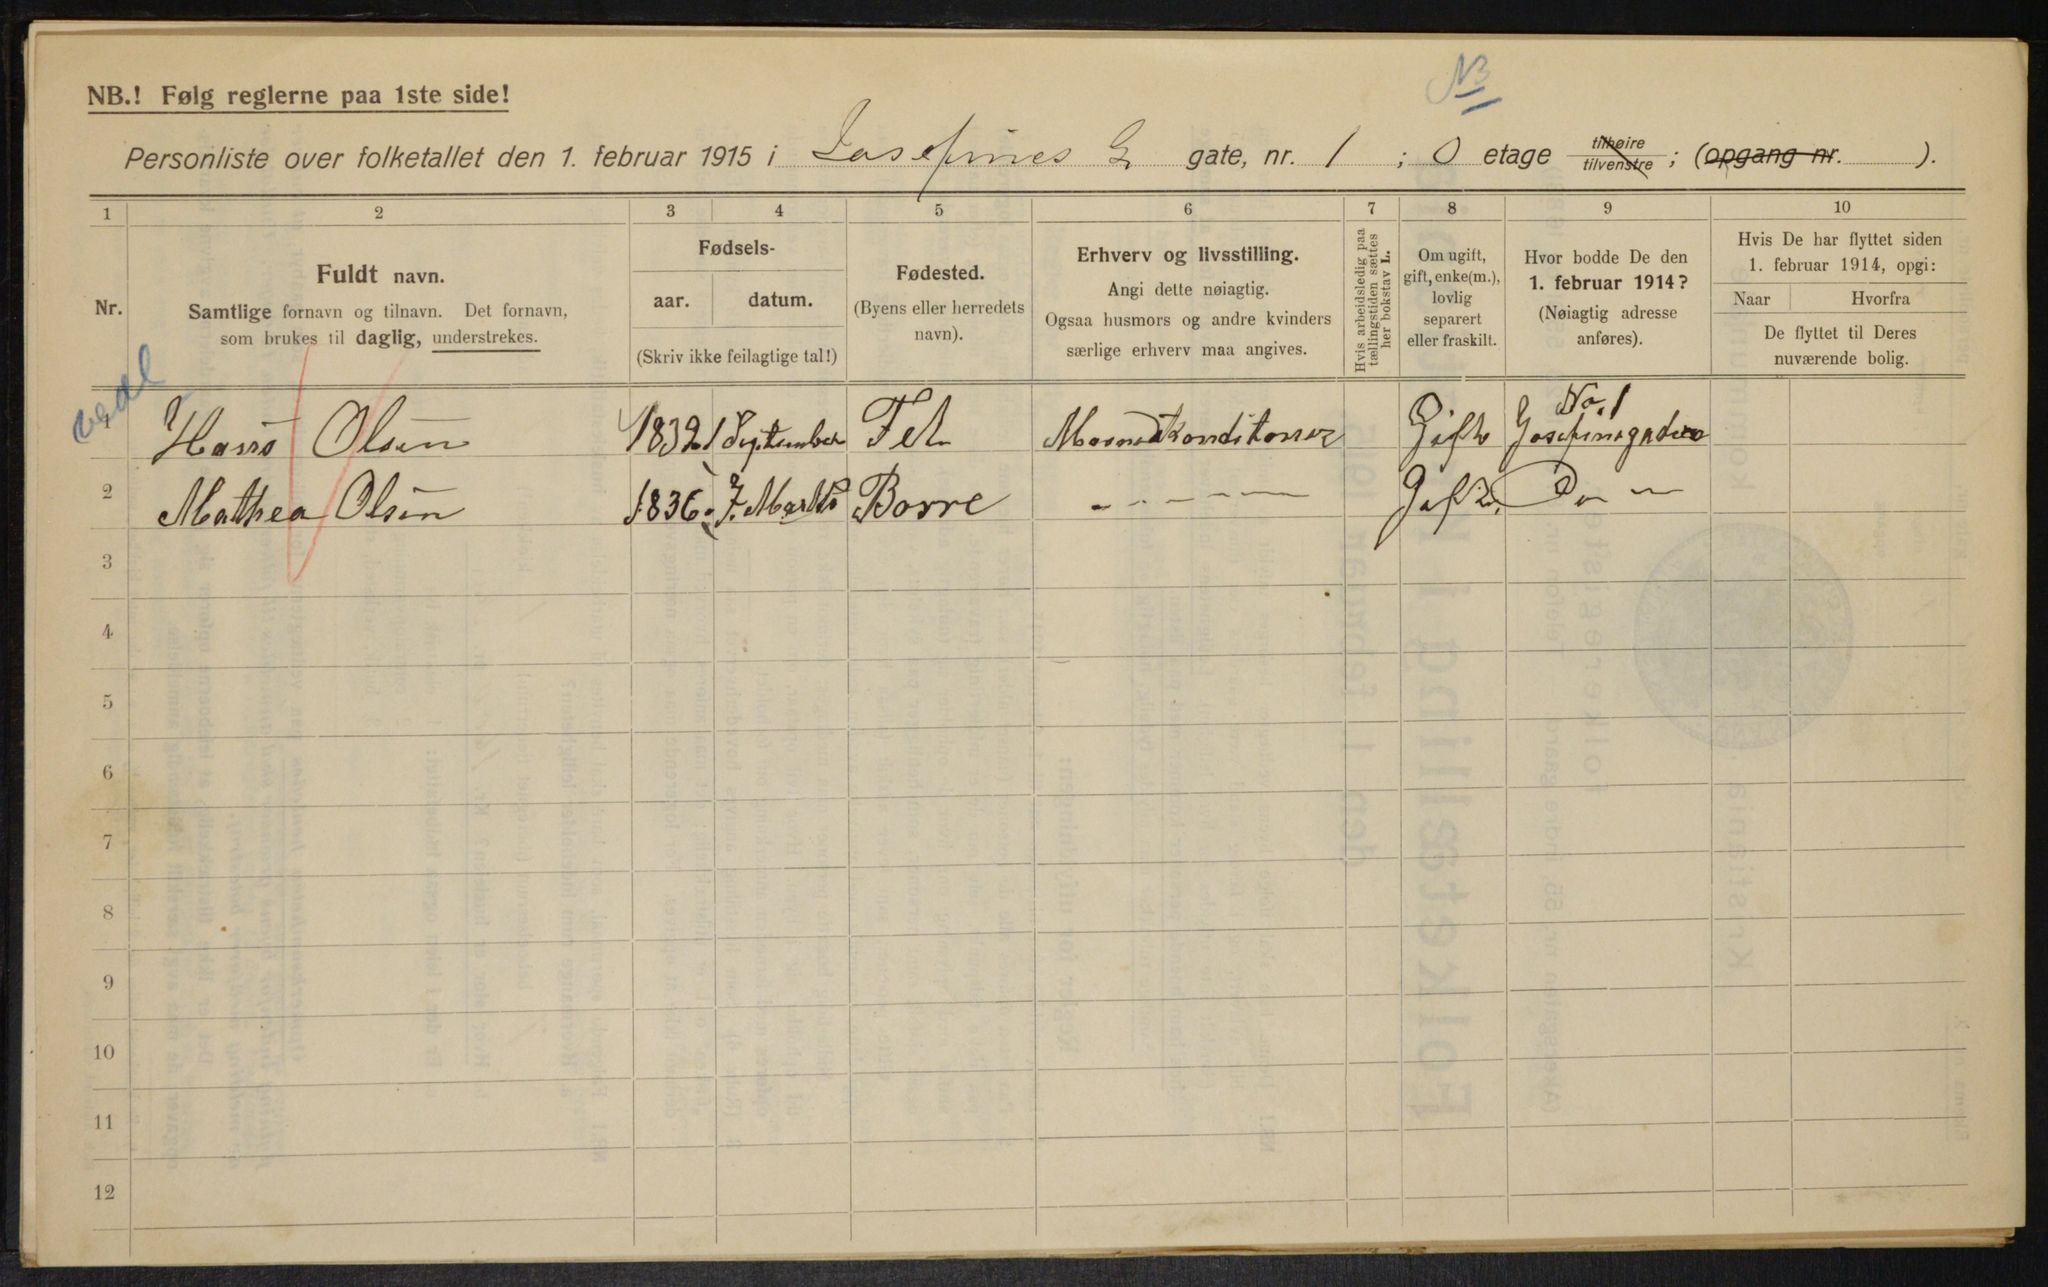 NB.! Følg reglerne paa 1ste side!
NB
Personliste over folketallet den 1. februar 1915 i Josefines G gate, nr. 1 ; 0 etage tilhøire tilvenstre ; (opgang nr. ).
1 2 3 4 5 6 7 8 9 10
Nr.
Fuldt navn.
Samtlige fornavn og tilnavn. Det fornavn,
som brukes til daglig, understrekes.
Fødsels-
aar. datum.
(Skriv ikke feilagtige tal!)
Fødested.
(Byens eller herredets
navn).
Erhverv og livsstilling.
Angi dette nøiagtig.
Ogsaa husmors og andre kvinders
særlige erhverv maa angives.
Hvis arbeidsledig paa
tællingstiden sættes
her bokstav L.
Om ugift,
gift, enke(m.),
lovlig
separert
eller fraskilt.
Hvor bodde De den
1. februar 1914?
(Nøiagtig adresse
anføres).
Hvis De har flyttet siden
1. februar 1914, opgi:
Naar Hvorfra
De flyttet til Deres
nuværende bolig.
No. 1
1 Hans Olsen 1832 1 September Fet Gift Josefinegaden
2 Mathea Olsen 1836. 7. Marts Borre - - - - - Gift. Do —
3
4
5
6
7
8
9
10
11
12